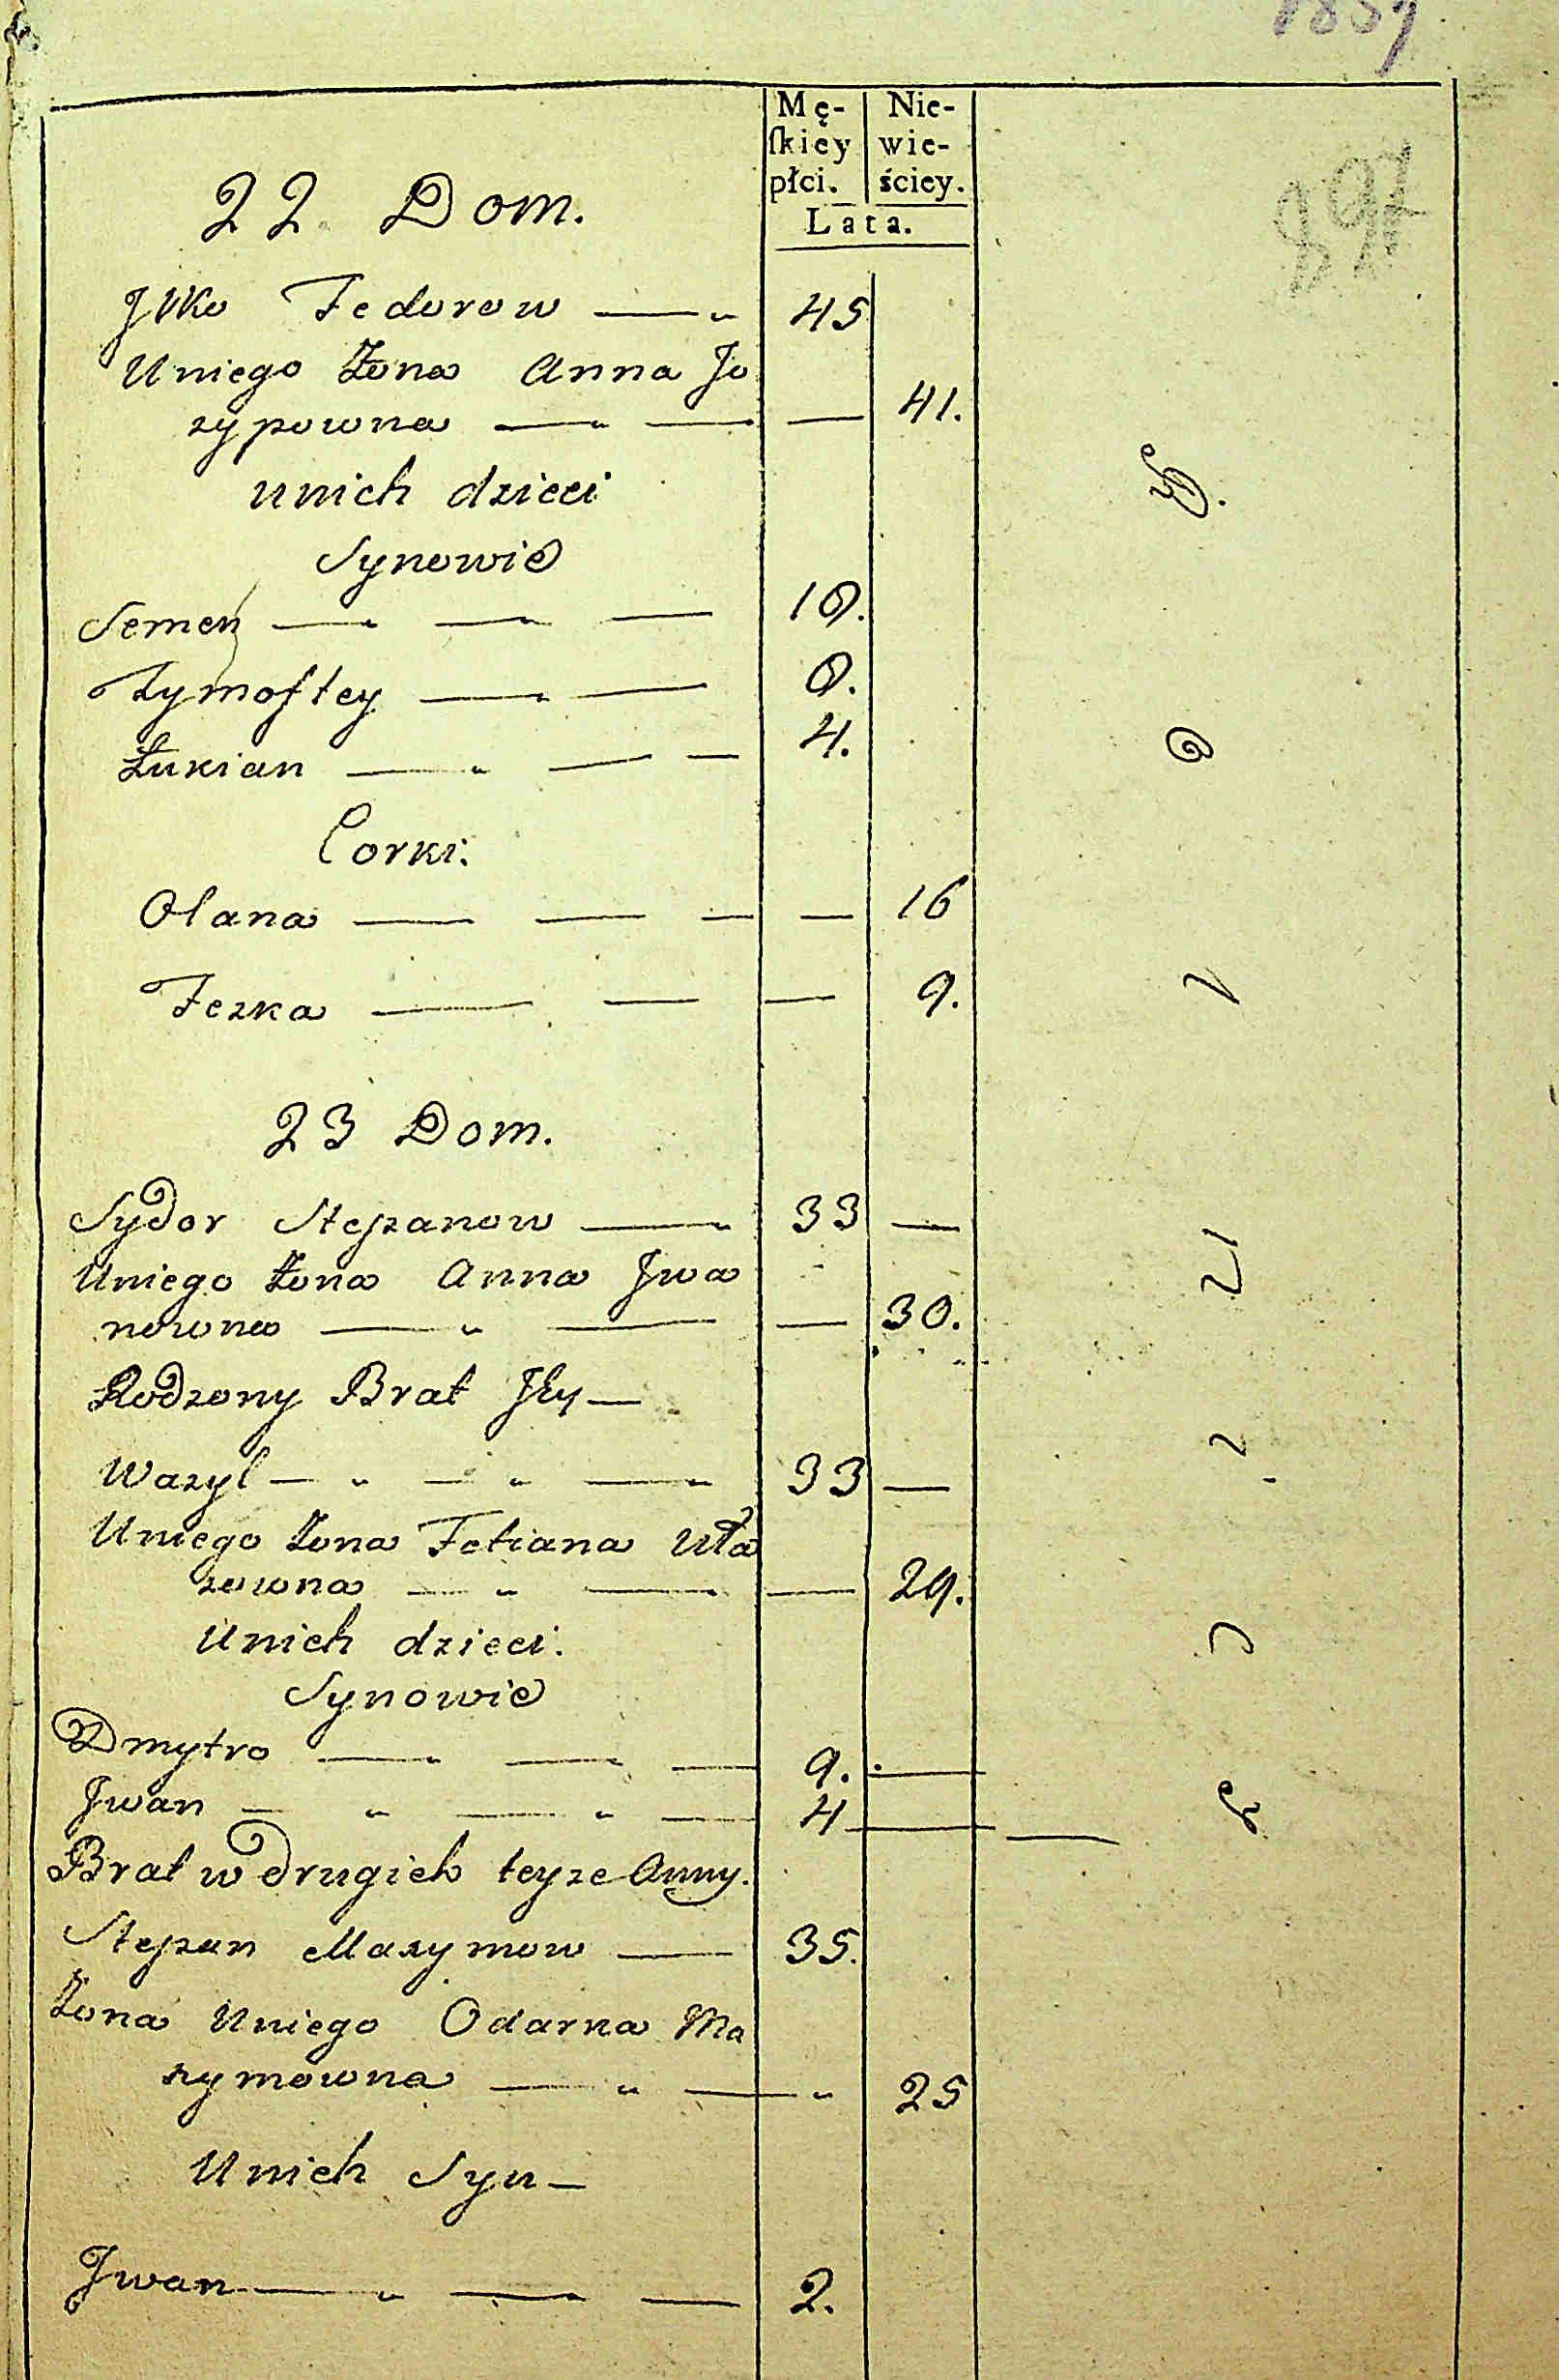 1837
Mę-
ſkiey
płci.
Nie-
wie-
ściey.
Lata.
22 Dom.
Jlko Fedorow 45
Uniego Żona Anna Jo
zypowna 41.
unich dzieci
Synowie
Semen 18.
Tymoftey 8.
Łukian 4.
Corki.
Olana 16
Fezka 9.
23 Dom.
Sydor Stepanow 33
Uniego Żona Anna Jwa
nowna 30.
Rodzony Brat Jey
Wazyl 33
Uniego Żona Tetiana Ula
zowna 29.
Unich dzieci.
Synowie
Dmytro 9.
Jwan 4
Brat w drugich teyze Anny.
Stepan Mazymow 35.
Żona Uniego Odarka Ma
zymowna 25
Unich Syn
Jwan 2.